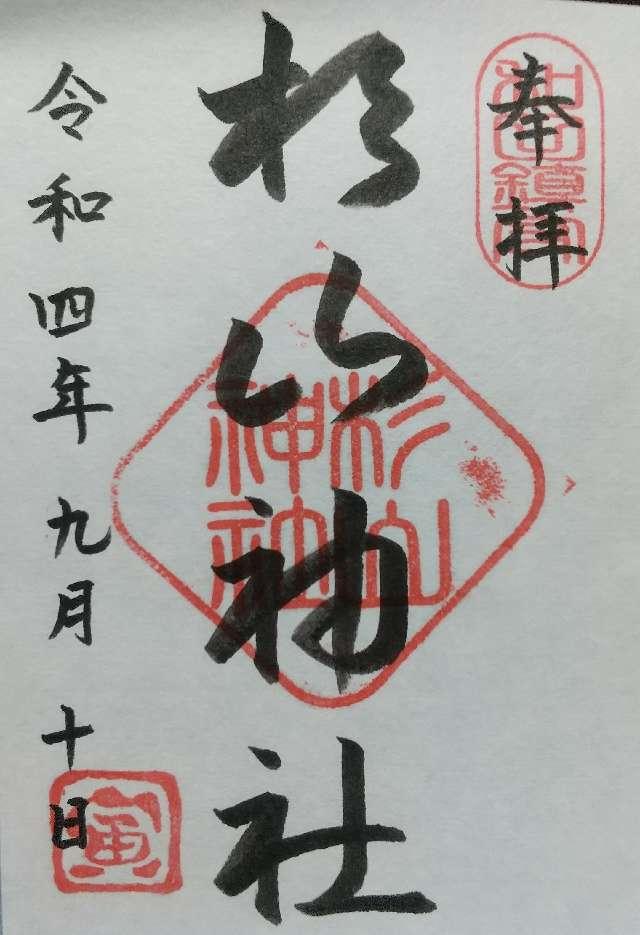 奉拝
和田鎮守
杉山神社
杉山
神社
令和四年九月十日
寅